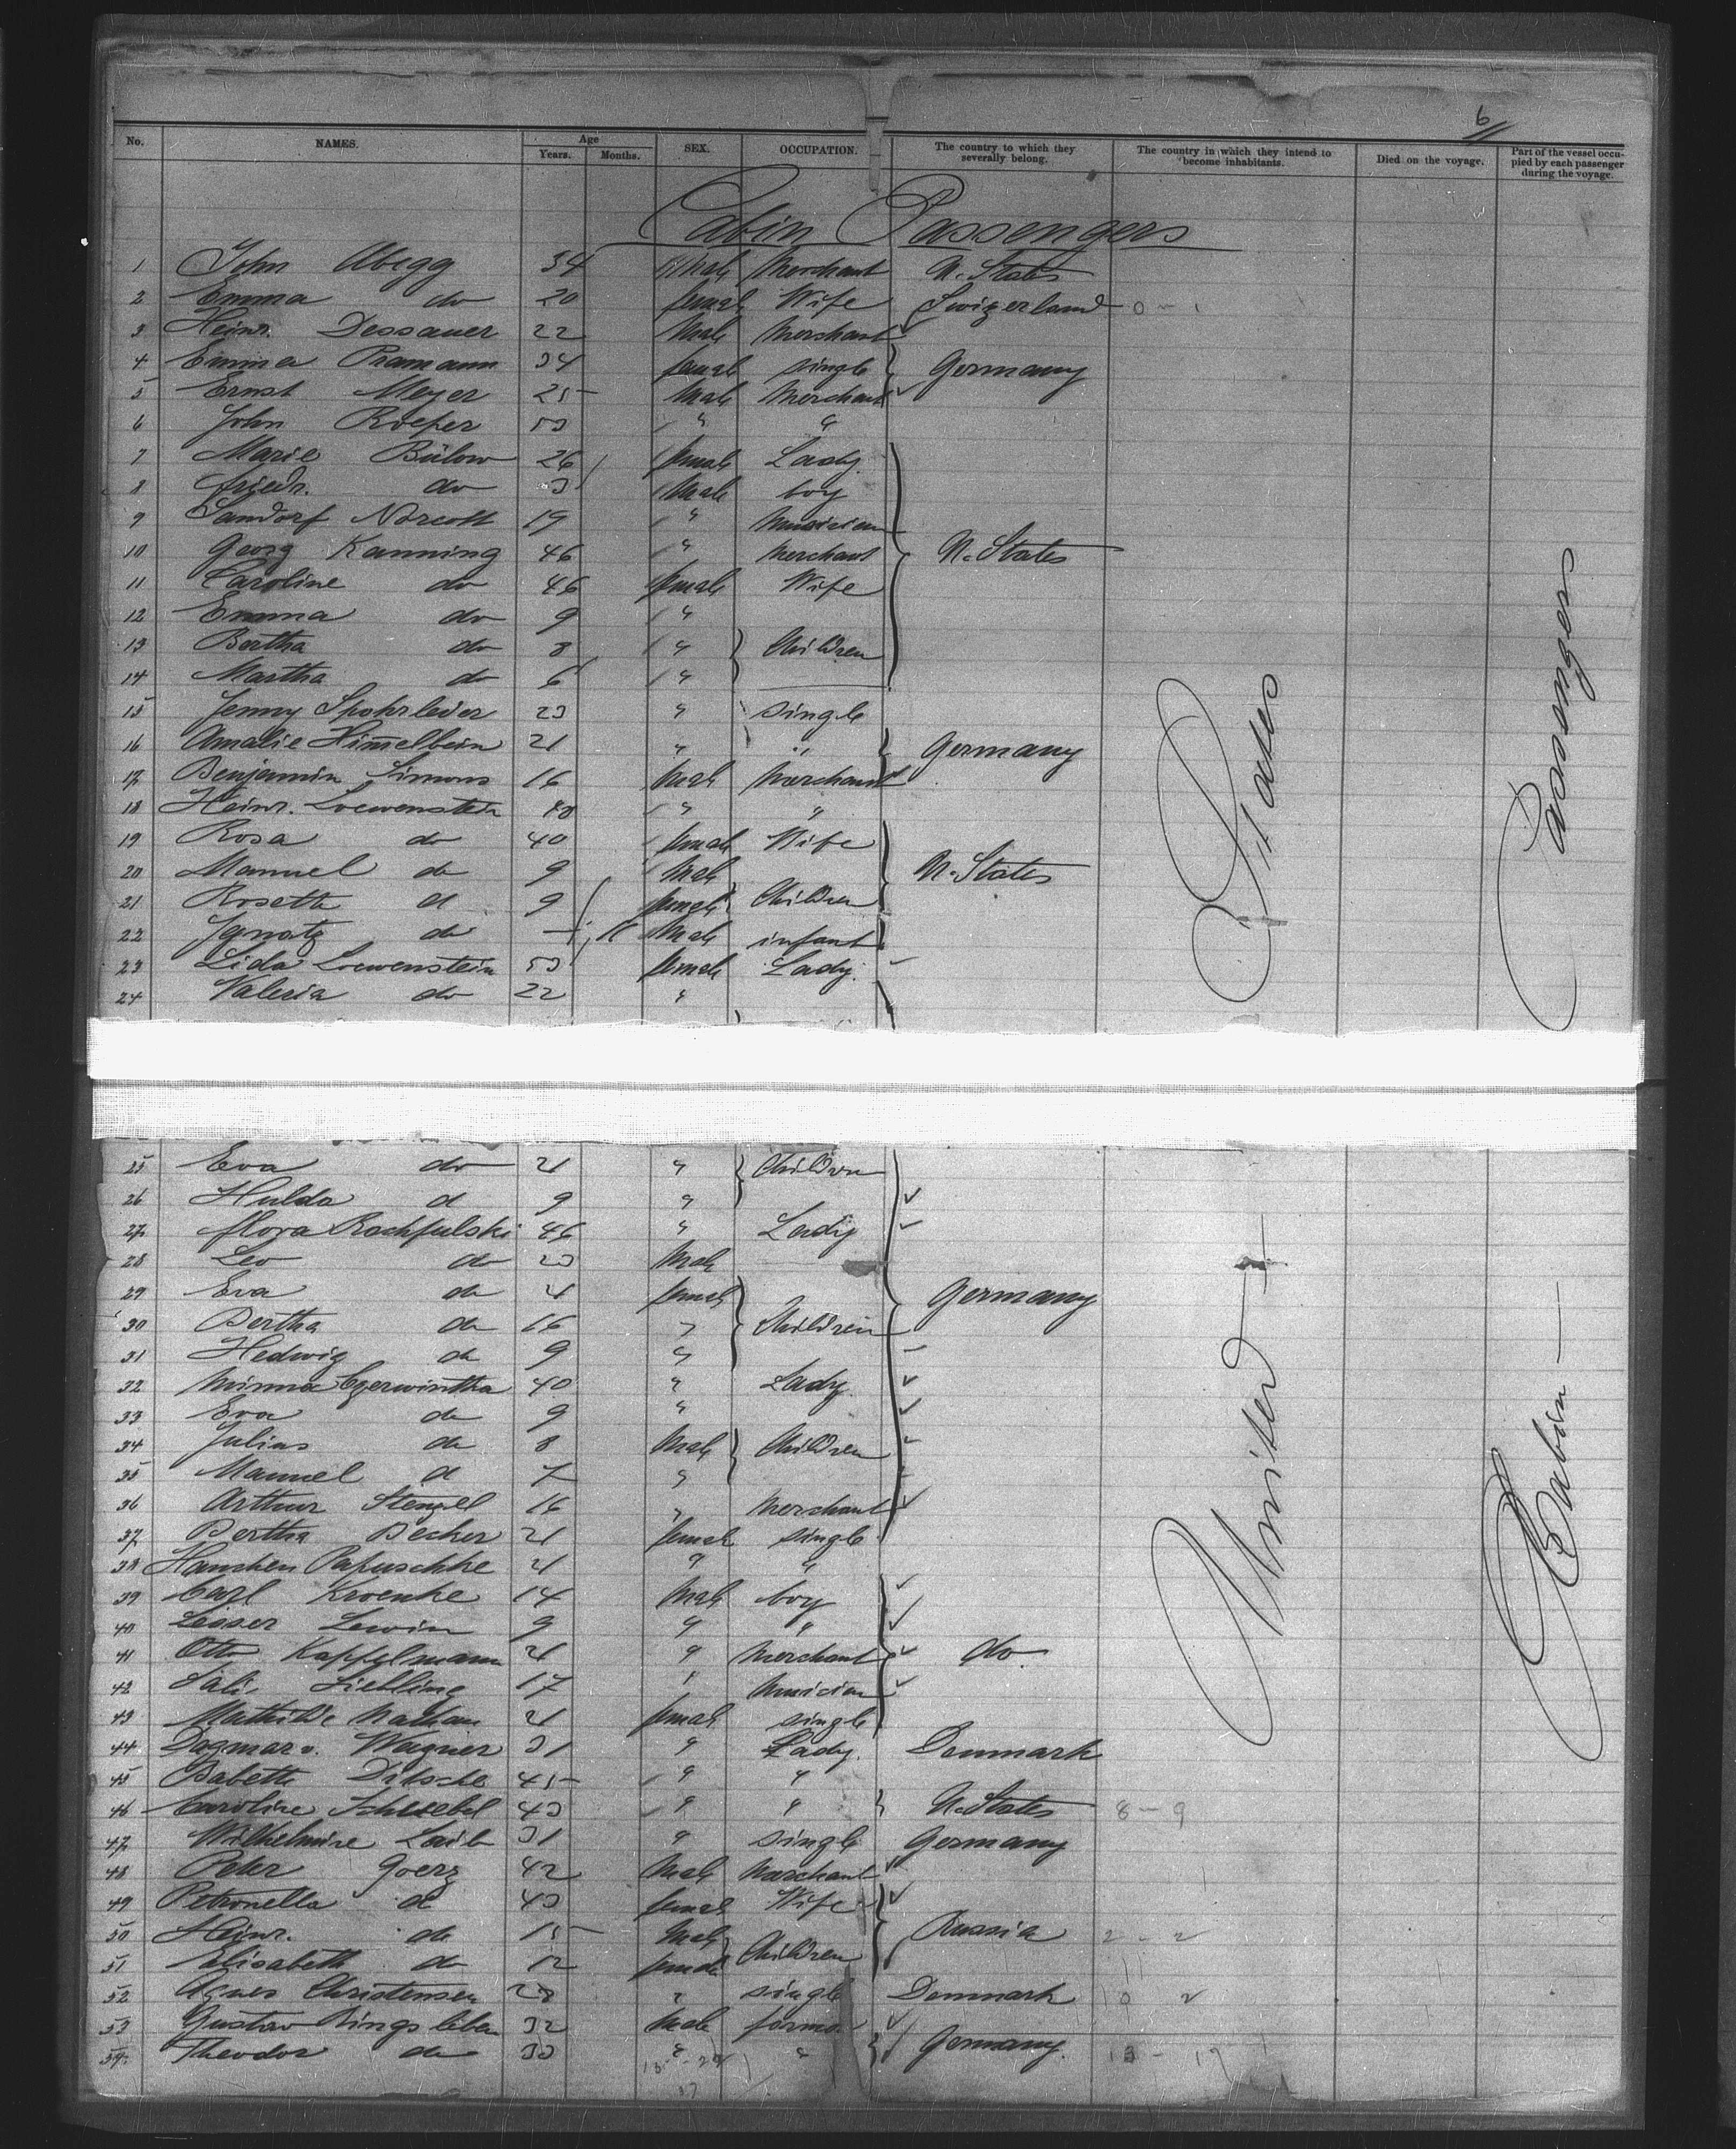 6
No. NAMES. Age SEX. OCCUPATION. The country to which they severally belong. The country in which they intend to become inhabitants. Died on the voyage. Part of the vessel occupied by each passenger during the voyage.
Years. Months.
Cabin Passengers
1 John Abegg 34 Male Merchant U. States
2 Emma do 20 female Wife Switzerland
3 Heinr. Dessauer 22 Male Merchant
4 Emma Pramann 34 female single Germany
5 Ernst Meyer 25 Male Merchant
6 John Roefer 53 " "
7 Marie Bülow 26 female Lady
8 friedr. do 3 Male boy
9 Sandorf Norcott 19 " Musician
10 Georg Kanning 46 " Merchant U. States
11 Caroline do 46 female Wife
12 Emma do 9 "
13 Bertha do 8 " Children
14 Martha do 6 "
15 Jenny Spohrleder 23 " single
16 Amalie Himmelbein 21 " " Germany
17 Benjamin Simons 16 Male Merchant
18 Heinr. Loewenstein 48 " "
19 Rosa do 40 female Wife
20 Manuel do 9 Male U. States
21 Rosette d 9 female Children
22 Ignatz do Male infant
23 Lida Loewenstein 53 female Lady
24 Valeria do 22 "
25 Eva do 21 " Children
26 Hulda d 9 "
27 flora Rachfulski 46 " Lady
28 Leo do 23 Male
29 Eva do 21 female Germany
30 Bertha do 16 " Children
31 Hedwig do 9 "
32 Minna Czerwintha 40 " Lady
33 Eva do 9 "
34 Julius do 8 Male Children
35 Manuel d 7 "
36 Arthur Stenzel 16 " Merchant
37 Bertha Becker 21 female single
38 Hanchen Papuschke 21 " "
39 Carl Kroenke 14 Male boy
40 Lesser Lewin 9 " "
41 Otto Kapfelmann 21 " Merchant do.
42 Sali Liebling 17 " Musician
43 Mathilde Nathan 21 female single
44 Dagmar v. Wagner 31 " Lady Denmark
45 Babette Ditsche 45 " "
46 Caroline Scheebel 43 " " U. States 8 - 9
47 Wilhelmine Laib 31 " single Germany
48 Peter Goerz 42 Male Merchant
49 Petronella do 43 female Wife
50 Heinr. do 15 Male Russia 2 - 2
51 Elisabeth do 12 female Children
52 Agnes Christensen 28 " single Denmark
53 Gustav Ringsleben 32 Male farmer
54 Theodor do 33 " " Germany.
United States
Cabin Passengers